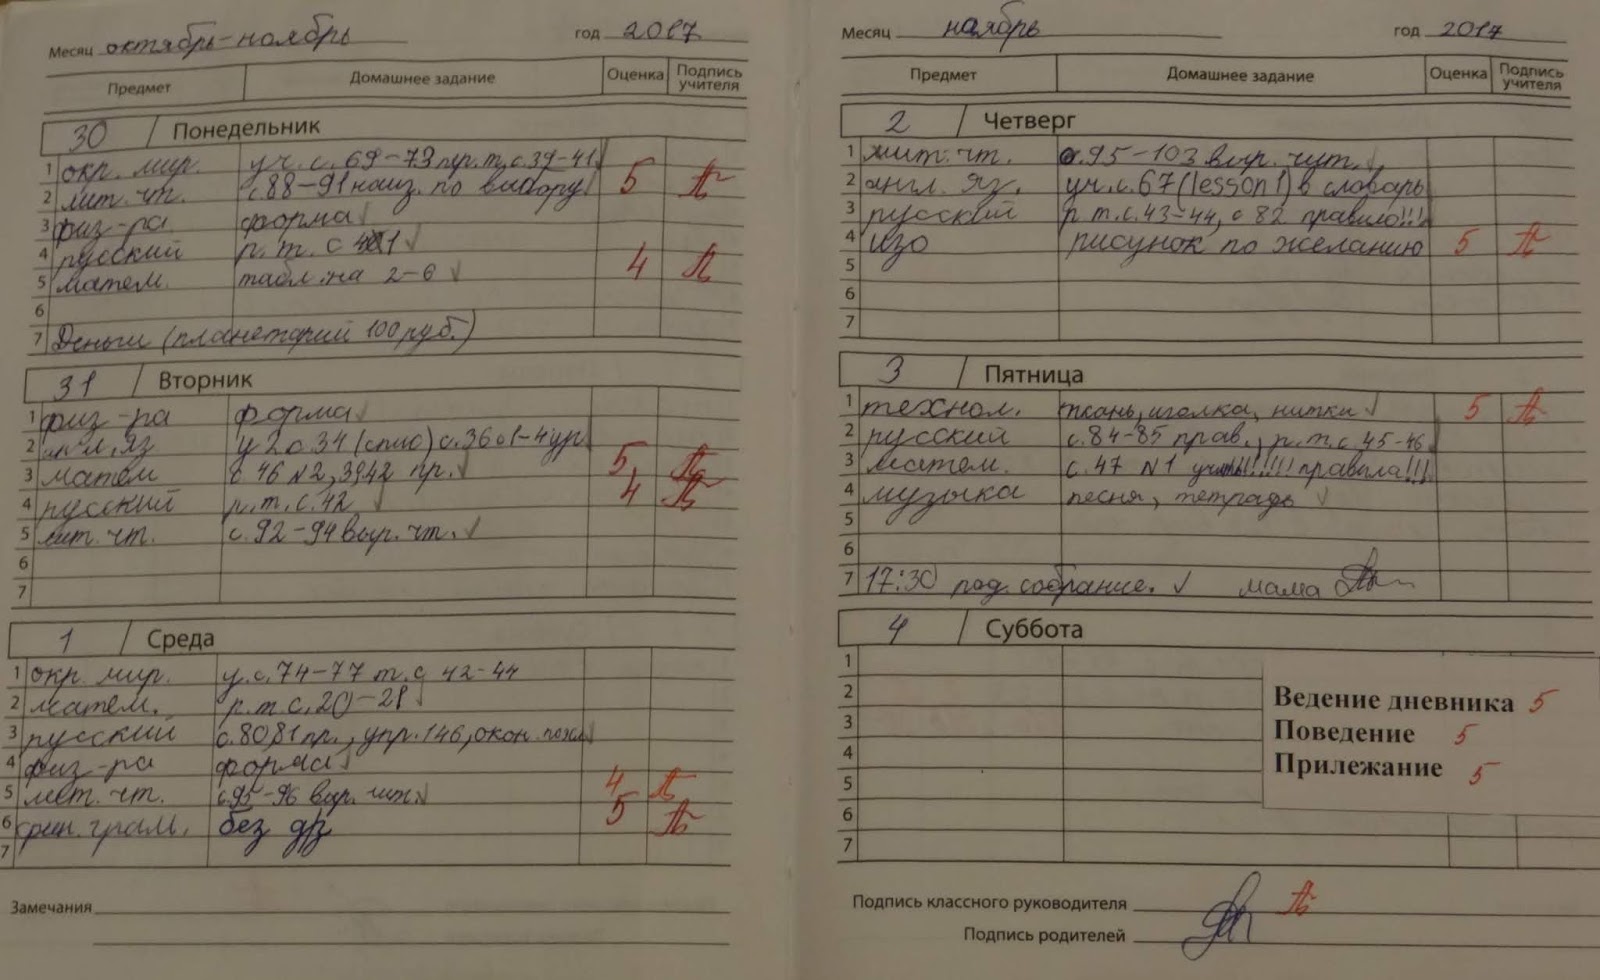 Месяц октябрь-ноябрь год 2017
Предмет Домашнее задание Оценка Подпись учителя
30 Понедельник
1 окр. мир. уч. с. 69-73 пр. т. с. 39-41
2 лит. чт. с. 88-91 наиз. по выбору 5
3 физ-ра форма
4 русский р. т. с 41
5 матем. табл. на 2-6 4
6
7 Деньги (планетарий 100 руб.)
31 Вторник
1 физ-ра форма
2 англ. яз у 2 с 34 (спис) с. 36
3 матем с 46 №2, 3942 пр. 5
4 русский р. т. с. 42 4
5 лит. чт. с. 92-94 выр. чт.
6
7
1 Среда
1 окр. мир. у. с. 74-77 т. с 42-44
2 матем. р. т. с. 20-21
3 русский с. 80,81 пр., упр. 146, окон.
4 физ-ра форма
5 лит. чт. с 95-96 выр. чит. 4
6 фин. грам. без д/з 5
7
Замечания
Месяц ноябрь год 2017
Предмет Домашнее задание Оценка Подпись учителя
2 Четверг
1 лит. чт. с. 95-103 выр. чит.
2 англ. яз. уч. с. 67 (lesson 1) в словарь
3 русский р. т. с. 43-44, с 82 правило!!!
4 изо рисунок по желанию 5
5
6
7
3 Пятница
1 технол. ткань, иголка, нитки 5
2 русский с. 84-85 прав., р. т. с. 45-46
3 матем. с. 47 №1 учить!!!!!! правила!!!
4 музыка песня, тетрадь
5
6
7 17:30 род. собрание. мама
4 Суббота
1
2
3
4
5
6
7
Ведение дневника 5
Поведение 5
Прилежание 5
Подпись классного руководителя
Подпись родителей